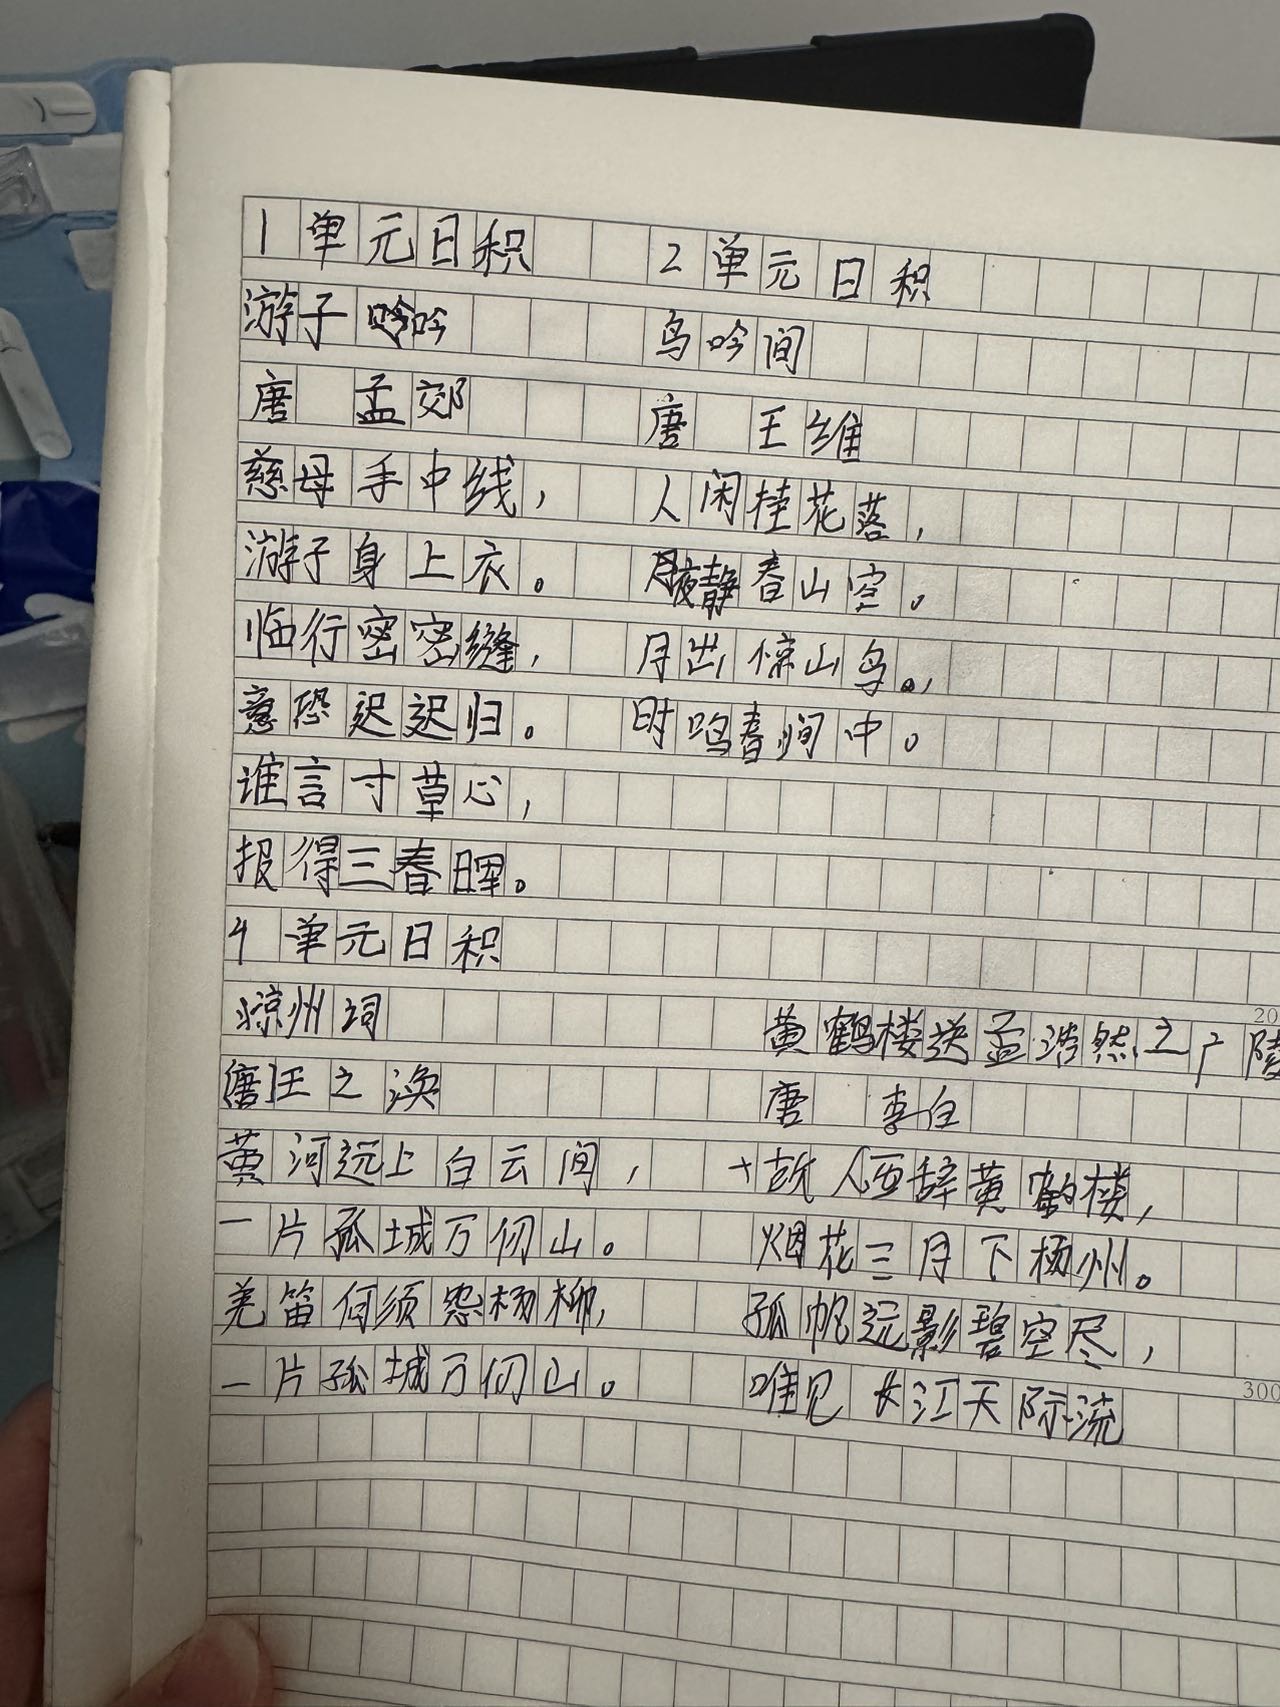 1单元日积
游子吟吟
唐 孟郊
慈母手中线,
游子身上衣。
临行密密缝,
意恐迟迟归。
谁言寸草心,
报得三春晖。
2单元日积
鸟吟间
唐 王维
人闲桂花落,
静春山空。
月出惊山鸟。,
时鸣春涧中。
4单元日积
凉州词
唐王之涣
黄河远上白云间,
一片孤城万仞山。
羌笛何须怨杨柳,
一片孤城万仞山。
黄鹤楼送孟浩然之广陵
唐 李白
人西辞黄鹤楼,
烟花三月下杨州。
孤帆远影碧空尽,
唯见长江天际流
20
300